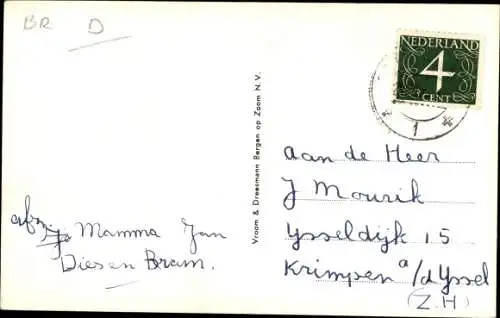 BR D
NEDERLAND
4
CENT
1
Vroom & Dreesmann Bergen op Zoom N.V.
afz. Mamma Jan
Dies en Bram.
aan de Heer
J Mourik
Ysseldijk 15
Krimpen a/d Yssel
(Z.H)